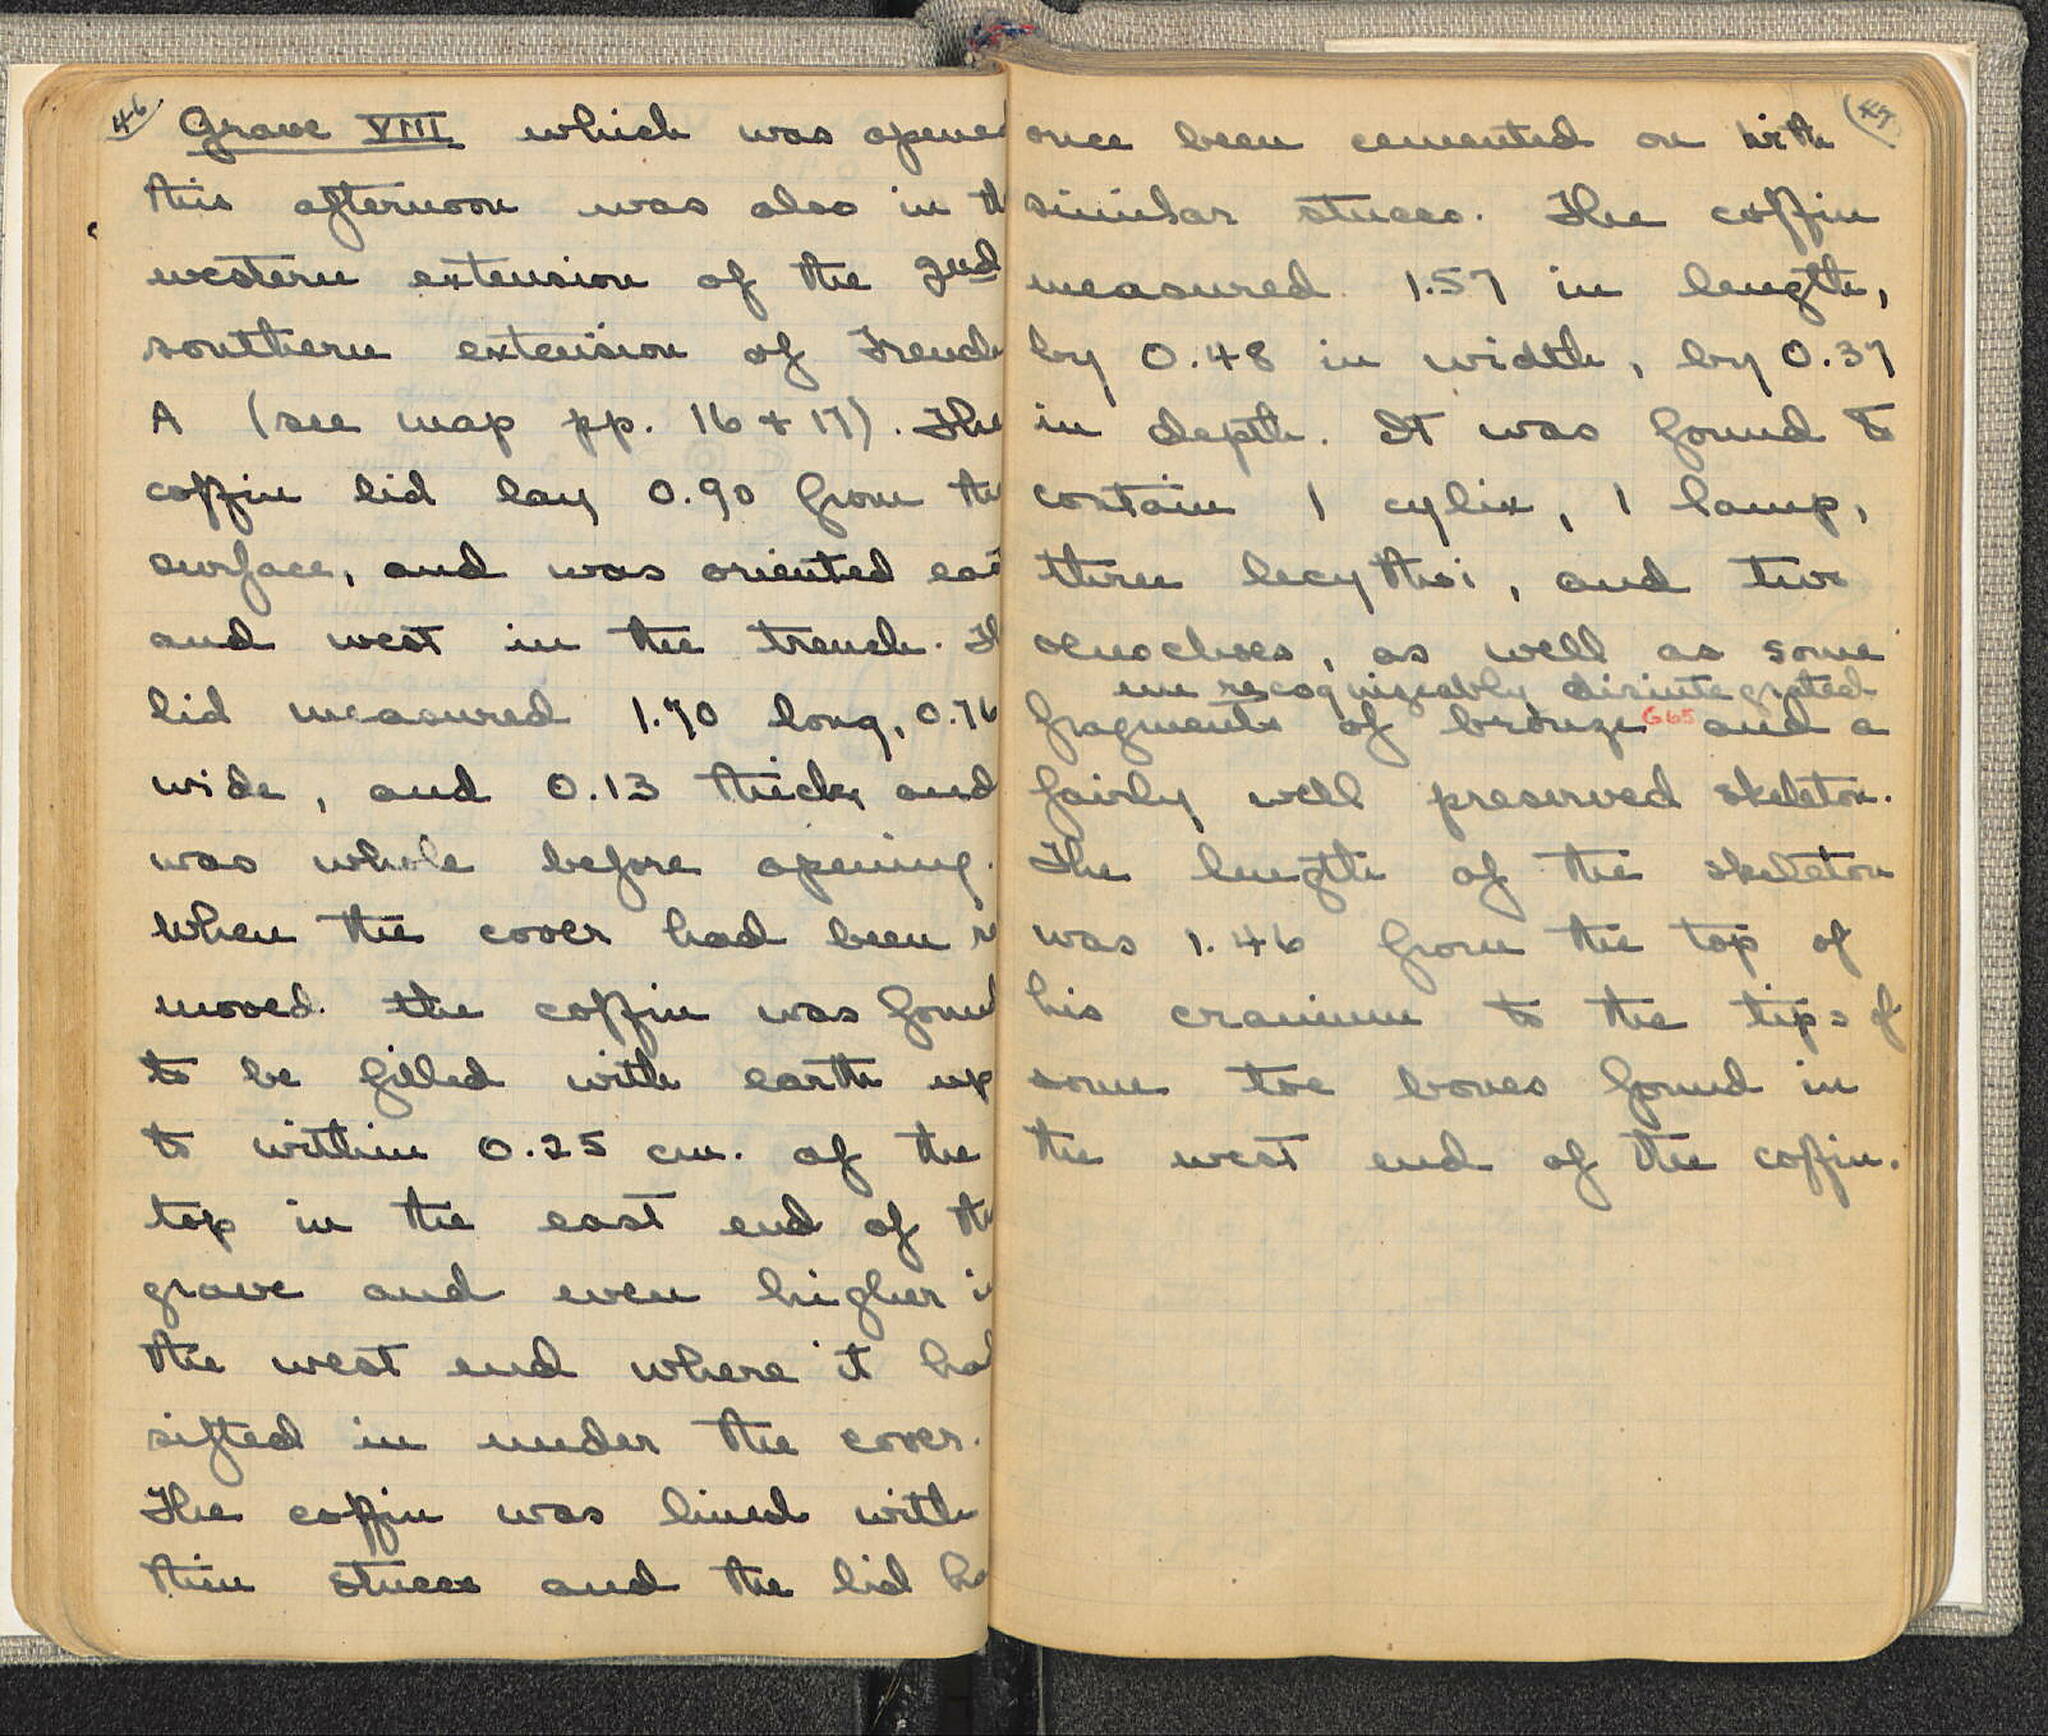 46
Grave VIII which was opened
this afternoon was also in th
western extension of the 2nd
southern extension of Trench
A (see map pp. 16 + 17). The
coffin lid lay 0.90 from the
surface, and was oriented east
and west in the trench. Th
lid measured 1.70 long, 0.76
wide, and 0.13 thick, and
was whole before opening.
When the cover had been re
moved. the coffin was found
to be filled with earth up
to within 0.25 cm. of the
top in the east end of the
grave and even higher in
the west end where it had
sifted in under the cover.
The coffin was lined with
thin stucco and the lid ha
47
once been cemented on with
similar stucco. The coffin
measured 1.57 in length,
by 0.48 in width, by 0.37
in depth. It was found to
contain 1 cylix, 1 lamp,
three lecythoi, and two
oenochoes, as well as some
unrecognizeably disintegrated
fragments of bronze G65 and a
fairly well preserved skeleton.
The length of the skeleton
was 1.46 from the top of
his cranium to the tips of
some toe bones found in
the west end of the coffin.